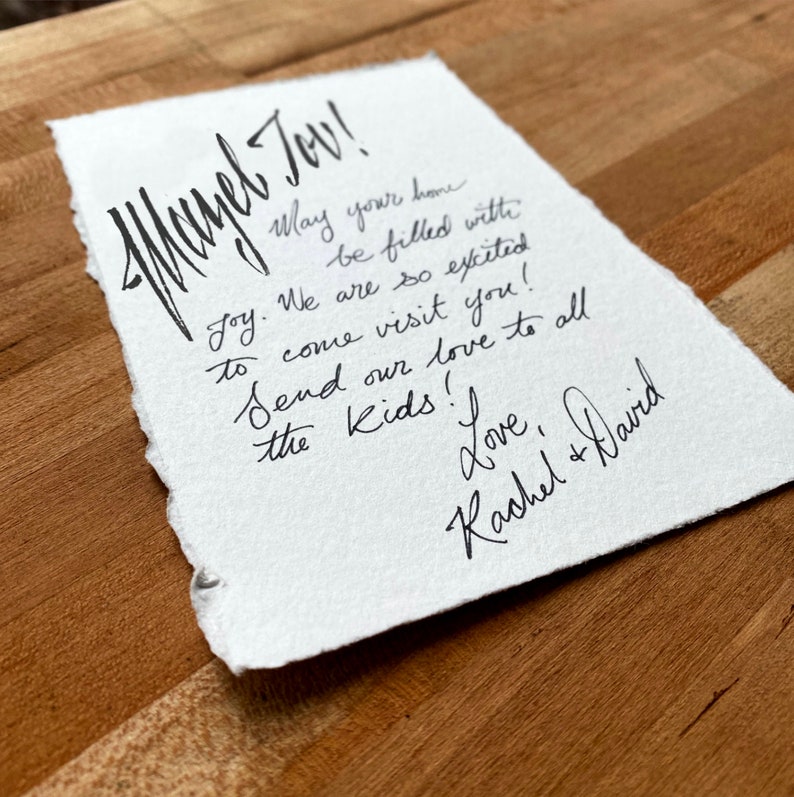 Mazel Tov!
May your home
be filled with
joy. We are so excited
to come visit you!
Send our love to all
the kids!
Love,
Rachel & David